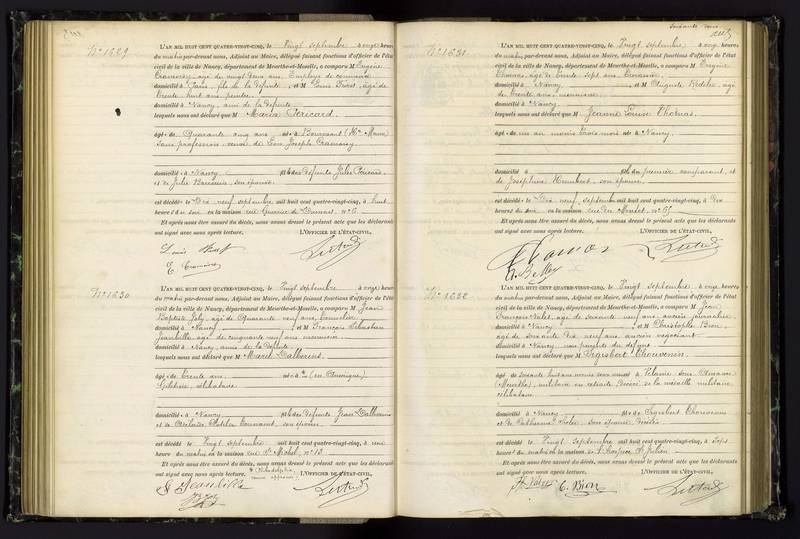 N° 1629
L'AN MIL HUIT CENT QUATRE-VINGT-CINQ, le Vingt septembre à onze heures
du matin par-devant nous, Adjoint au Maire, délégué faisant fonctions d'officier de l'état
civil de la ville de Nancy, département de Meurthe-et-Moselle, a comparu M Eugène
âgé de vingt deux ans, Employé de commerce
domicilié à Paris, fils de la défunte, et M Louis âgé de
trente huit ans, peintre,
domicilié à Nancy, ami de la défunte
lesquels nous ont déclaré que M Maria Péricard
âgée de Quarante cinq ans née à Bourmont (Hte Marne)
Sans profession veuve de Joseph
domiciliée à Nancy fille des défunts Jules Péricard
et de Julie son épouse
est décédée le Dix neuf septembre mil huit cent quatre-vingt-cinq, à huit
heures du soir en la maison rue
Et après nous être assuré du décès, nous avons dressé le présent acte que les déclarants
ont signé avec nous après lecture. L'OFFICIER DE L'ÉTAT-CIVIL,
N° 1630
L'AN MIL HUIT CENT QUATRE-VINGT-CINQ, le Vingt septembre à onze heures
du matin par-devant nous, Adjoint au Maire, délégué faisant fonctions d'officier de l'état
civil de la ville de Nancy, département de Meurthe-et-Moselle, a comparu M Jean
Baptiste Joly, âgé de Quarante neuf ans,
domicilié à Nancy et M François Sébastien
Jeanbille âgé de cinquante neuf ans menuisier
domicilié à Nancy, amis de la défunte
lesquels nous ont déclaré que Marie
âgée de trente ans née à * (en Amérique)
célibataire
domiciliée à Nancy fille des défunts Jean
et de son épouse
est décédée le Vingt septembre mil huit cent quatre-vingt-cinq, à une
heure du matin en la maison rue St Michel n° 13
Et après nous être assuré du décès, nous avons dressé le présent acte que les déclarants
ont signé avec nous après lecture. * Philadelphie L'OFFICIER DE L'ÉTAT-CIVIL,
Jeanbille
N° 1631
L'AN MIL HUIT CENT QUATRE-VINGT-CINQ, le Vingt septembre à onze heures
du matin par-devant nous, Adjoint au Maire, délégué faisant fonctions d'officier de l'état
civil de la ville de Nancy, département de Meurthe-et-Moselle, a comparu M Eugène
Thomas, âgé de trente sept ans,
domicilié à Nancy et M Auguste âgé
de trente ans, menuisier
domicilié à Nancy
lesquels nous ont déclaré que Jeanne Louise Thomas
âgée de un an moins trois mois née à Nancy
domiciliée à fille du premier comparant, et
de Joséphine Humbert, son épouse
est décédée le Dix neuf septembre mil huit cent quatre-vingt-cinq, à Dix
heures du soir en la maison rue du Montet, n° 65
Et après nous être assuré du décès, nous avons dressé le présent acte que les déclarants
ont signé avec nous après lecture. L'OFFICIER DE L'ÉTAT-CIVIL,
Thomas
N° 1632
L'AN MIL HUIT CENT QUATRE-VINGT-CINQ, le Vingt septembre à onze heures
du matin par-devant nous, Adjoint au Maire, délégué faisant fonctions d'officier de l'état
civil de la ville de Nancy, département de Meurthe-et-Moselle, a comparu M Jean
François âgé de soixante neuf ans, ancien journalier
domicilié à Nancy et M Christophe Bion,
âgé de soixante dix neuf ans, ancien négociant
domicilié à Nancy non parents du défunt
lesquels nous ont déclaré que M Sigisbert Thouvenin
âgé de Soixante huit ans né à
(Meurthe), militaire en retraite, décoré de la médaille militaire,
célibataire
domicilié à Nancy fils de Sigisbert Thouvenin
et de Catherine son épouse, décédés
est décédé le Vingt septembre mil huit cent quatre-vingt-cinq, à Sept
heures du matin en la maison de l'Hospice St Julien
Et après nous être assuré du décès, nous avons dressé le présent acte que les déclarants
ont signé avec nous après lecture. L'OFFICIER DE L'ÉTAT-CIVIL,
C. Bion